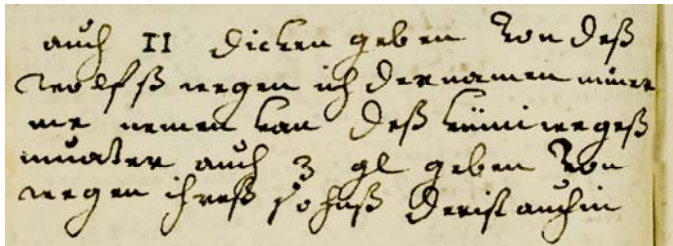 auch II dicken geben von deß
wolfß wegen ich der namen nimer
me nemen kan deß küniwegeß
muater auch 3 gl geben von
wegen ihreß sohnß der ist auch in